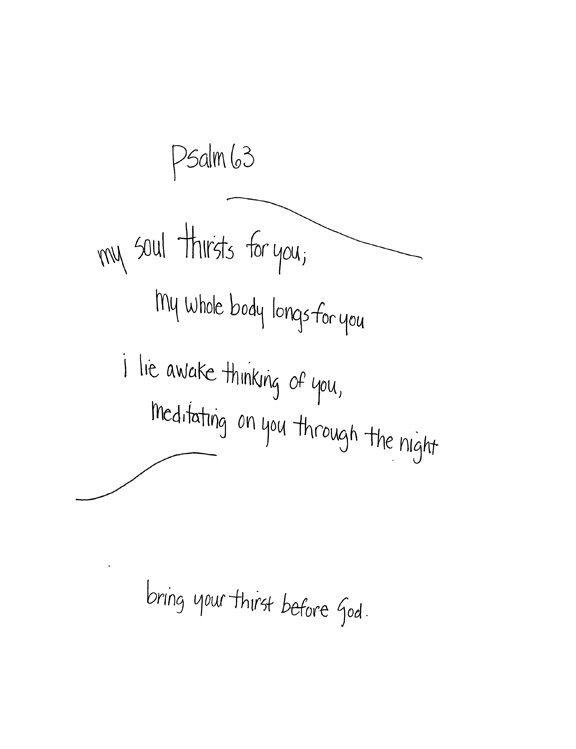 Psalm 63
my soul thirsts for you;
my whole body longs for you
i lie awake thinking of you,
meditating on you through the night
bring your thirst before God.